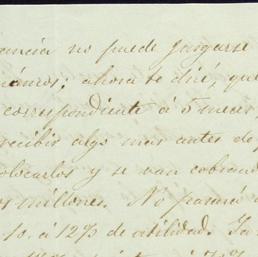 ancia no puede juzgarse
ahora te diré, que
correspondiente á 5 meses
recibir algo mas antes de
olocarlos y se van cobrand
millones. No pasará
10. á 12% de utilidad. Ya